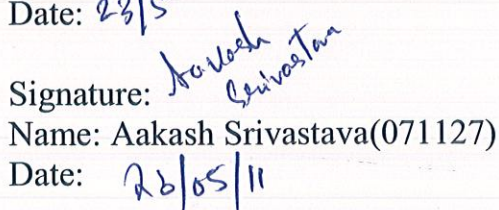 Date: 23/5
Signature: Aakash
Srivastava
Name: Aakash Srivastava(071127)
Date: 26/05/11